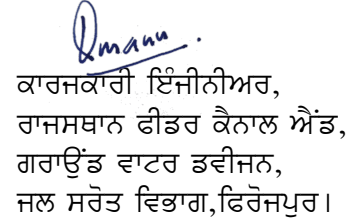 ਕਾਰਜਕਾਰੀ ਇੰਜੀਨੀਅਰ,
ਰਾਜਸਥਾਨ ਫੀਡਰ ਕੈਨਾਲ ਐਂਡ,
ਗਰਾਉਂਡ ਵਾਟਰ ਡਵੀਜਨ,
ਜਲ ਸਰੋਤ ਵਿਭਾਗ,ਫਿਰੋਜਪੁਰ।